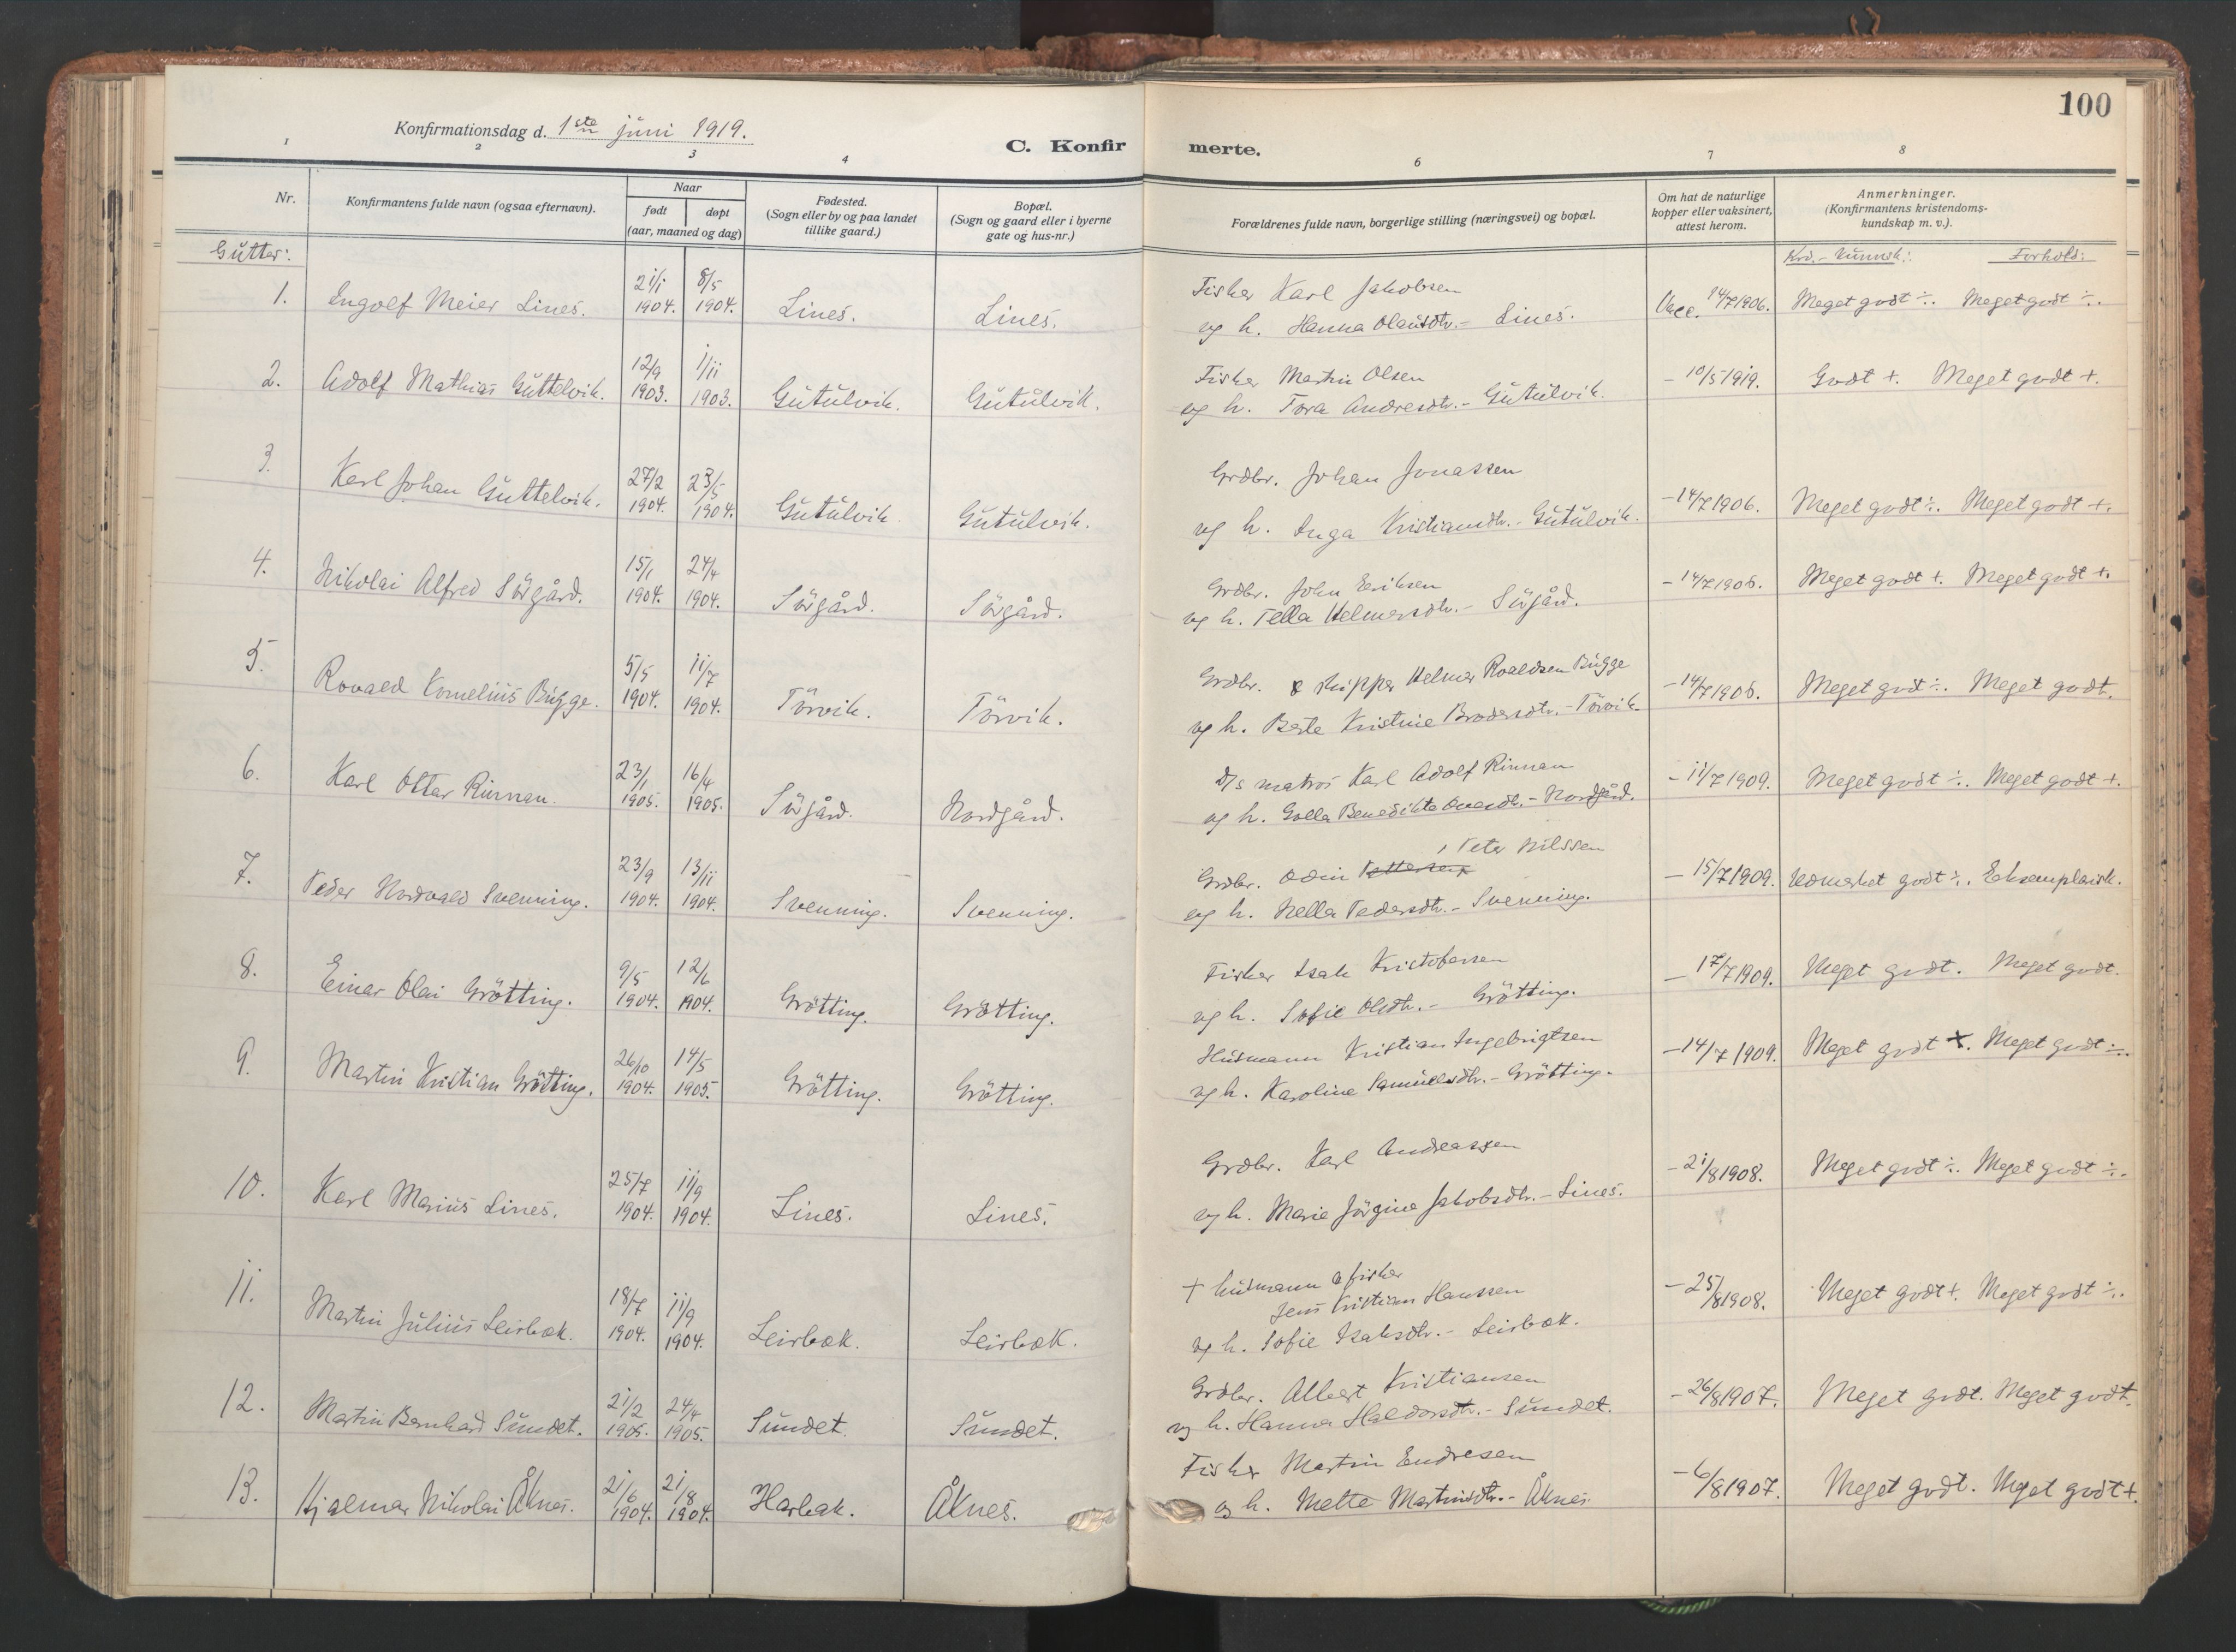 100
Konfirmationsdag d. 1ste juni 1919.
C. Konfirmerte.
1 2 3 4 6 7 8
Nr.
Konfirmantens fulde navn (ogsaa efternavn).
Naar
født
døpt
(aar, maaned og dag)
Fødested.
(Sogn eller by og paa landet
tillike gaard.)
Bopæl.
(Sogn og gaard eller i byerne
gate og hus-nr.)
Forældrenes fulde navn, borgerlige stilling (næringsvei) og bopæl.
Om hat de naturlige
kopper eller vaksinert,
attest herom.
Anmerkninger.
(Konfirmantens kristendoms-
kundskap m. v.).
Gutter:
Krd.-kunnsk.: Forhold:
1. Ingolf Meier Lines. 21/1 1904. 8/5 1904. Lines. Lines.
Fisker Karl Jakobsen
og h. Hanna Olausdtr.- Lines.
Vacc. 14/7 1906. Meget godt ÷. Meget godt ÷.
2. Adolf Mathias Guttelvik. 12/9 1903. 1/11 1903. Gutulvik. Gutulvik.
Fisker Martin Olsen
og h. Tora Andresdtr.- Gutulvik.
- 10/5 1919. Godt +. Meget godt +.
3. Karl Johan Guttelvik. 27/2 1904. 23/5 1904. Gutulvik. Gutulvik.
Grdbr. Johan Jonassen
og h. Inga Kristiansdtr.- Gutulvik.
- 14/7 1906. Meget godt ÷. Meget godt +.
4. Nikolai Alfred Sörgård. 15/1 1904. 24/4 1904. Sörgård. Sörgård.
Grdbr. John Eriksen
og h. Tella Helmersdtr.- Sörgård.
- 14/7 1906. Meget godt +. Meget godt +.
5. Rovald Kornelius Bugge. 5/5 1904. 11/7 1904. Törvik. Törvik.
Grdbr. & skipper Helmer Roaldsen Bugge
og h. Berte Kristine Brodersdtr.- Törvik.
- 14/7 1906. Meget godt ÷. Meget godt.
6. Karl Ottar Rinnan. 23/1 1905. 16/4 1905. Sörgård. Nordgård.
D/s matros Karl Adolf Rinnan
og h. Golla Benedikte - Nordgård.
- 11/7 1909. Meget godt ÷. Meget godt +.
7. Peder Nordvald Svenning. 23/9 1904. 13/11 1904. Svenning. Svenning.
Peter Nilssen
Grdbr. Odin Pettersen
og h. Nella Pedersdtr.- Svenning.
- 15/7 1909. Udmerket godt ÷. Eksemplarisk.
8. Einar Olai Grötting. 9/5 1904. 12/6 1904. Grötting. Grötting.
Fisker Isak Kristofersen
og h. Sofie Olsdtr.- Grötting.
- 17/7 1909. Meget godt. Meget godt.
9. Martin Kristian Grötting. 26/10 1904. 14/5 1905. Grötting. Grötting.
Husmann Kristian Ingebrigtsen
og h. Karoline Samuelsdtr.- Grötting.
- 14/7 1909. Meget godt +. Meget godt ÷.
10. Karl Marius Lines. 25/7 1904. 11/9 1904. Lines. Lines.
Grdbr. Karl Andreassen
og h. Marie Jörgine Jakobsdtr.- Lines.
- 21/8 1908. Meget godt ÷. Meget godt ÷.
11. Martin Julius Leirbæk. 18/7 1904. 11/9 1904. Leirbæk. Leirbæk.
+ husmann & fisker
Jens Kristian Hanssen
og h. Sofie Isaksdtr.- Leirbæk.
- 25/8 1908. Meget godt +. Meget godt ÷.
12. Martin Bernhard Sundet. 21/2 1905. 24/4 1905. Sundet. Sundet.
Grdbr. Albert Kristiansen
og h. Hanna Haldorsdtr.- Sundet.
- 26/8 1907. Meget godt. Meget godt.
13. Hjalmar Nikolai Åknes. 21/6 1904. 21/8 1904. Harbak. Åknes.
Fisker Martin Endresen
og h. Mette Martinsdtr.- Åknes
- 6/8 1907. Meget godt. Meget godt +.